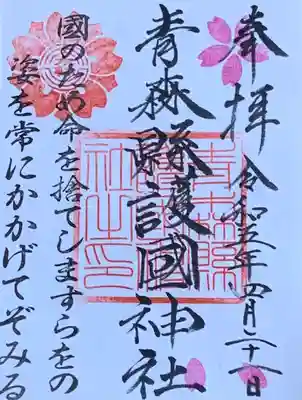 奉拝
令和五年四月二十一日
青森縣護國神社
青森縣護國神社之印
國のため命を捨てしますらをの
姿を常にかかげてぞみる